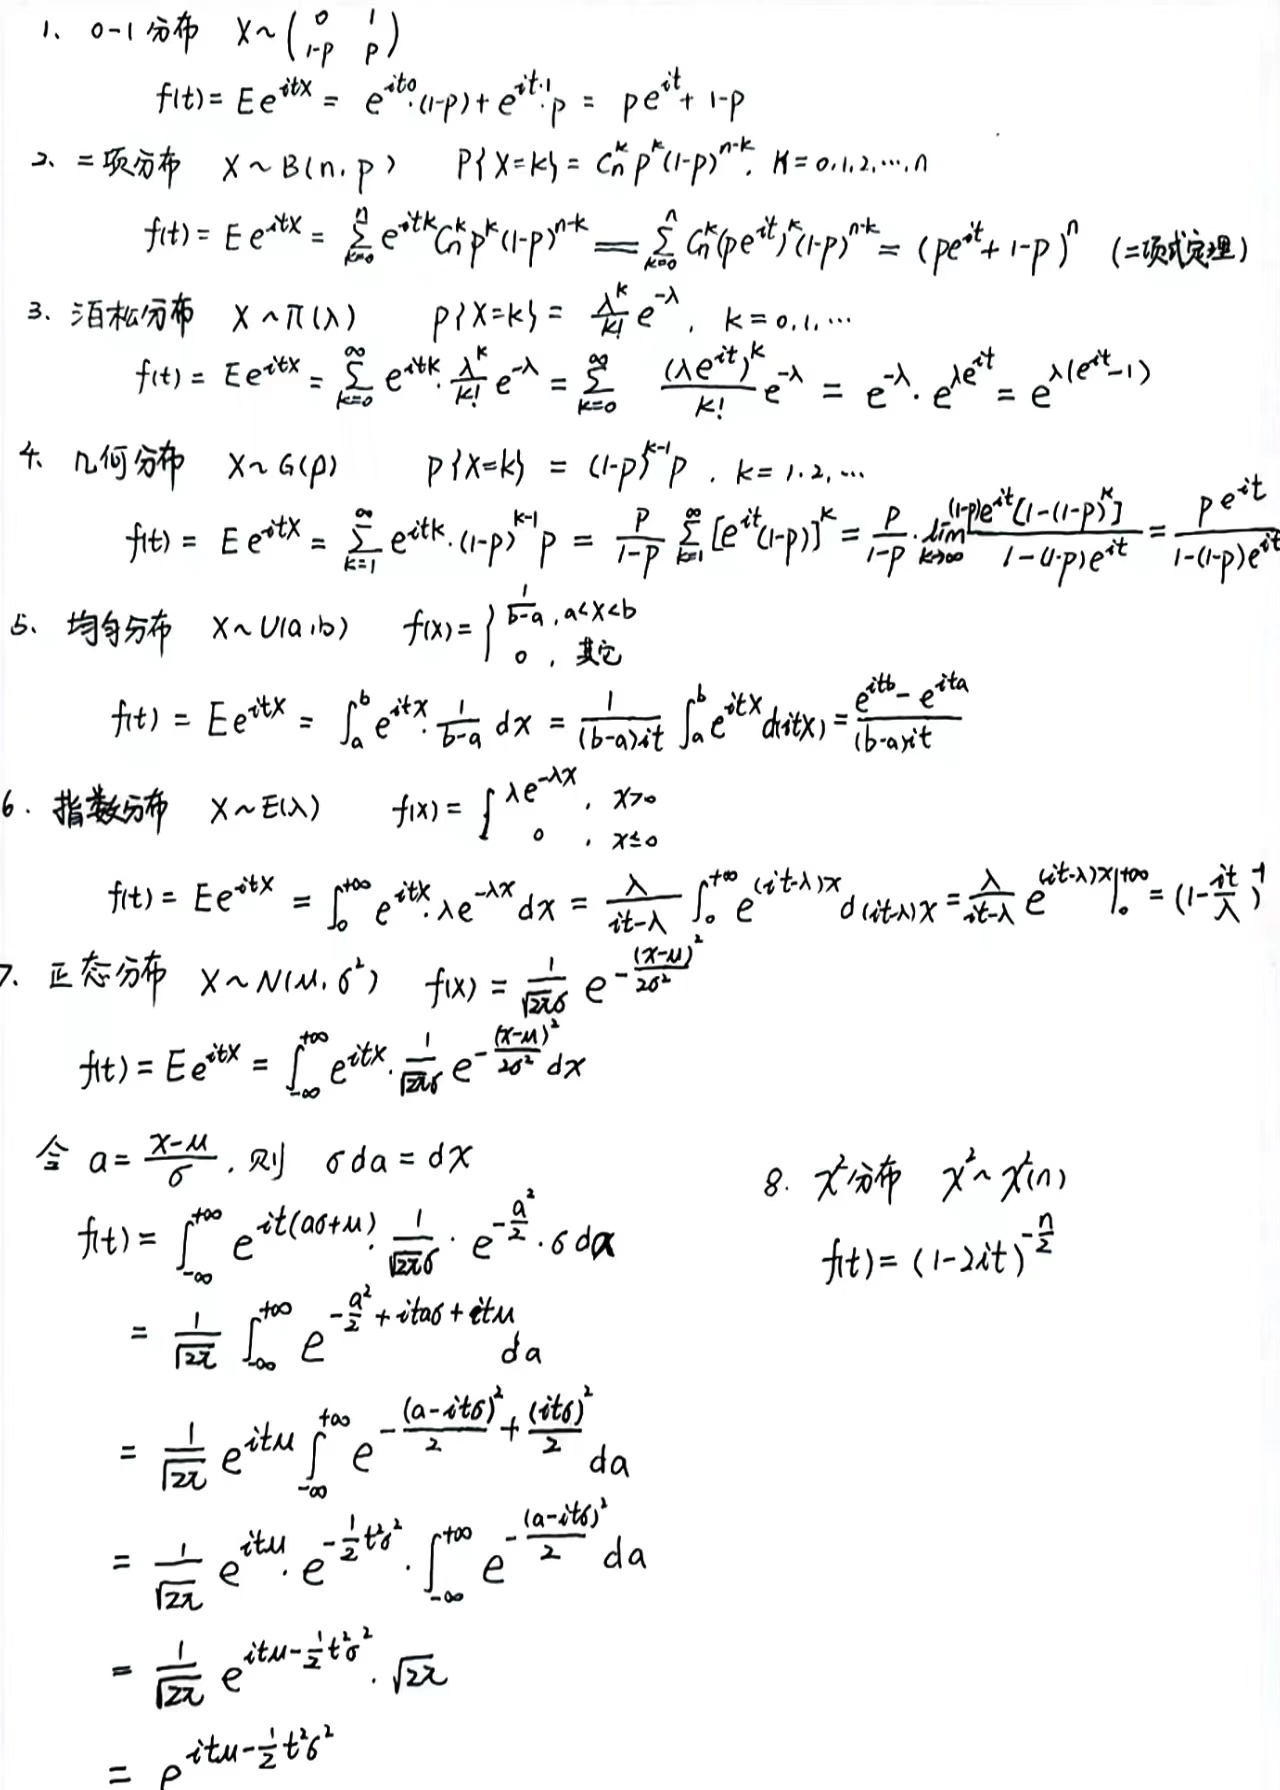 1、 0-1分布 X~(0 1 / 1-p p)
f(t)= Ee^{itX} = e^{it0}·(1-p)+e^{it·1}·p = pe^{it}+1-p
2、二项分布 X~B(n,p) P{X=k}= C_n^k p^k(1-p)^{n-k}, K=0,1,2,…,n
f(t)= Ee^{itX} = \sum_{k=0}^{n} e^{itk}C_n^k p^k(1-p)^{n-k} = \sum_{k=0}^{n} C_n^k(pe^{it})^k(1-p)^{n-k} = (pe^{it}+1-p)^n (二项式定理)
3、泊松分布 X~π(λ) p{X=k}= \frac{λ^k}{k!}e^{-λ}, k=0,1,…
f(t)= Ee^{itX} = \sum_{k=0}^{∞} e^{itk}·\frac{λ^k}{k!}e^{-λ} = \sum_{k=0}^{∞} \frac{(λe^{it})^k}{k!}e^{-λ} = e^{-λ}·e^{λe^{it}} = e^{λ(e^{it}-1)}
4、几何分布 X~G(p) p{X=k} = (1-p)^{k-1}p, k=1,2,…
f(t)= Ee^{itX} = \sum_{k=1}^{∞} e^{itk}·(1-p)^{k-1}p = \frac{p}{1-p}\sum_{k=1}^{∞}[e^{it}(1-p)]^k = \frac{p}{1-p}·\lim_{k→∞}\frac{(1-p)e^{it}[1-(1-p)^k]}{1-(1-p)e^{it}} = \frac{pe^{it}}{1-(1-p)e^{it}}
5、均匀分布 X~U(a,b) f(x)={ \frac{1}{b-a}, a<x<b
0, 其它
f(t) = Ee^{itX} = ∫_a^b e^{itx}·\frac{1}{b-a} dx = \frac{1}{(b-a)it}∫_a^b e^{itx}d(itx) = \frac{e^{itb}-e^{ita}}{(b-a)it}
6. 指数分布 X~E(λ) f(x)={ λe^{-λx}, x>0
0, x≤0
f(t)= Ee^{itX} = ∫_0^{+∞} e^{itx}·λe^{-λx}dx = \frac{λ}{it-λ}∫_0^{+∞} e^{(it-λ)x}d(it-λ)x = \frac{λ}{it-λ}e^{(it-λ)x}|_0^{+∞} = (1-\frac{it}{λ})^{-1}
7、正态分布 X~N(μ,σ²) f(x) = \frac{1}{\sqrt{2π}σ}e^{-\frac{(x-μ)^2}{2σ^2}}
f(t)= Ee^{itX} = ∫_{-∞}^{+∞} e^{itx}·\frac{1}{\sqrt{2π}σ}e^{-\frac{(x-μ)^2}{2σ^2}}dx
令 a=\frac{x-μ}{σ}, 则 σda=dx
f(t)= ∫_{-∞}^{+∞} e^{it(aσ+μ)}·\frac{1}{\sqrt{2π}σ}·e^{-\frac{a^2}{2}}·σda
= \frac{1}{\sqrt{2π}}∫_{-∞}^{+∞} e^{-\frac{a^2}{2}+itaσ+itμ}da
= \frac{1}{\sqrt{2π}}e^{itμ}∫_{-∞}^{+∞} e^{-\frac{(a-itσ)^2}{2}+\frac{(itσ)^2}{2}}da
= \frac{1}{\sqrt{2π}}e^{itμ}·e^{-\frac{1}{2}t^2σ^2}·∫_{-∞}^{+∞} e^{-\frac{(a-itσ)^2}{2}}da
= \frac{1}{\sqrt{2π}}e^{itμ-\frac{1}{2}t^2σ^2}·\sqrt{2π}
= e^{itμ-\frac{1}{2}t^2σ^2}
8. χ²分布 χ²~χ²(n)
f(t)= (1-2it)^{-\frac{n}{2}}